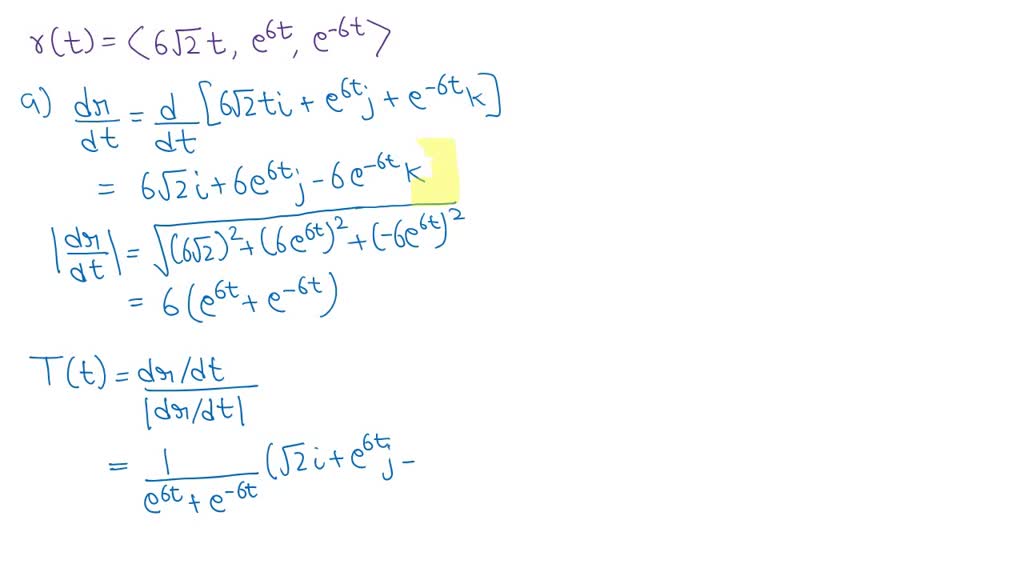 r(t) = ⟨6√2 t, e^{6t}, e^{-6t}⟩
a) dr/dt = d/dt [6√2ti + e^{6t}j + e^{-6t}k]
= 6√2i + 6e^{6t}j - 6e^{-6t}k
|dr/dt| = √((6√2)² + (6e^{6t})² + (-6e^{6t})²)
= 6(e^{6t} + e^{-6t})
T(t) = dr/dt / |dr/dt|
= 1/(e^{6t} + e^{-6t}) (√2i + e^{6t}j -